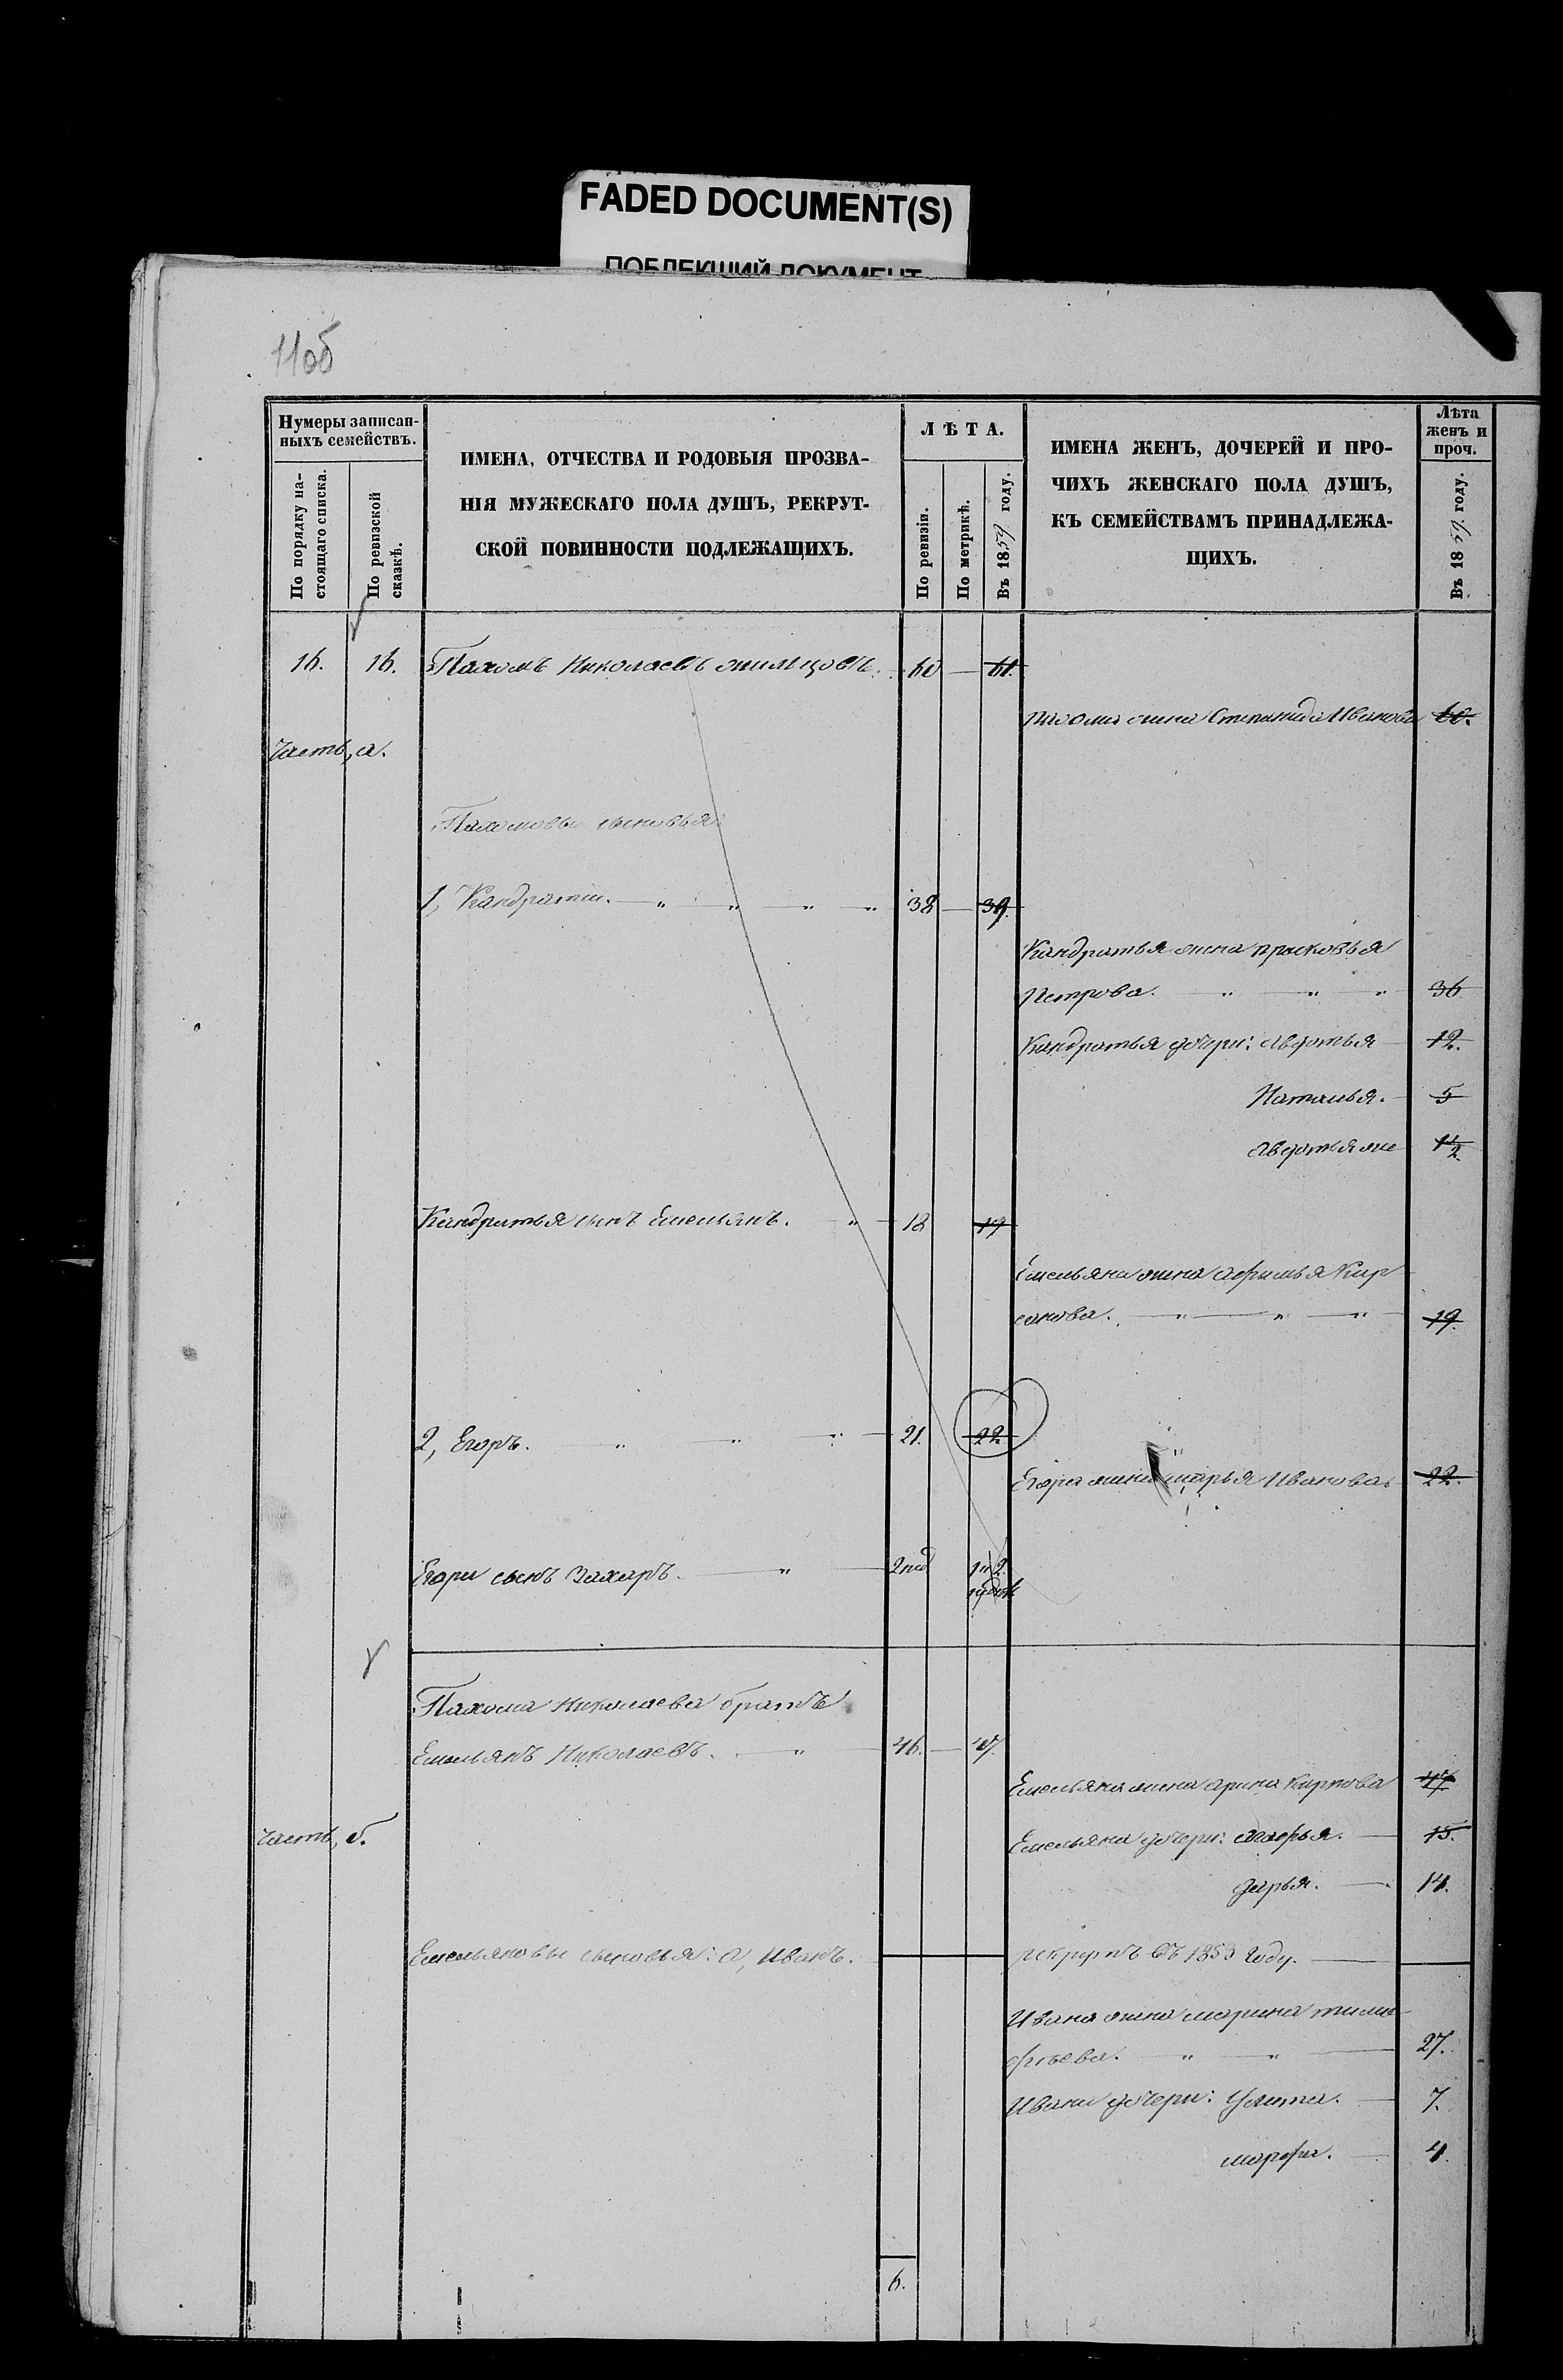 FADED DOCUMENT(S)
ПОБЛЕКШИЙ ДОКУМЕНТ
11об
Нумеры записан-
ныхъ семействъ.
По порядку на-
стоящаго списка.
По ревизской
сказкѣ.
ИМЕНА, ОТЧЕСТВА И РОДОВЫЯ ПРОЗВА-
НІЯ МУЖЕСКАГО ПОЛА ДУШЪ, РЕКРУТ-
СКОЙ ПОВИННОСТИ ПОДЛЕЖАЩИХЪ.
ЛѢТА.
По ревизіи.
По метрикѣ.
Въ 1859 году.
ИМЕНА ЖЕНЪ, ДОЧЕРЕЙ И ПРО-
ЧИХЪ ЖЕНСКАГО ПОЛА ДУШЪ,
КЪ СЕМЕЙСТВАМЪ ПРИНАДЛЕЖА-
ЩИХЪ.
Лѣта
женъ и
проч.
Въ 1859 году.
16. 16. Пахомъ Николаевъ жильцовъ. 60 — 61.
Пахома жена Степанида Иванова 60.
Часть, а.
Пахомовы сыновья:
1, Кандратiи. — " " " " 38 — 39.
Кандратья жена прасковья
Петрова. " — " — " 36
Кандратья дочери: Авдотья — 12.
Наталья. — 5
Авдотья же 1/2
Кандратья сынъ Емельянъ. " — 18 19
Емельяна жена Афимья Кир
санова. — " — " — " — 19.
2, Егоръ. " — " — " — 21. 22
Егора жена марья Иванова 22.
Егора сынъ Захаръ. — " — 2нед 1 1/2
Пахома Николаева братъ
Емельянъ Николаевъ. — " — 46. — 47.
Емельяна жена Арина Карпова 47
Часть, б.
Емельяна дочери: Агафья. — 15.
дарья. — 14.
Емельяновы сыновья: а, Иванъ. рекрутъ въ 1853 году. —
Ивана жена марина тимо
фѣева. " — " — 27.
Ивана дочери: Улита. — 7.
марфа. — 4.
6.